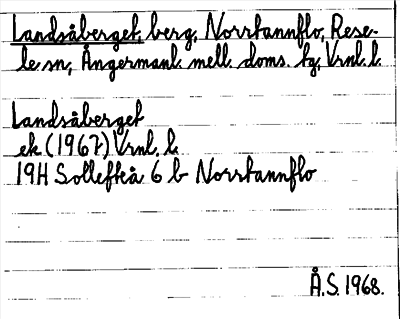 Landsåberget, berg, Norrtannflo, Rese-
le sn, Ångermanl. mell. doms. tg, Vrnl. l.
Landsåberget
ek (1967) Vrnl. l.
19H Sollefteå 6 b Norrtannflo
Å.S. 1968.